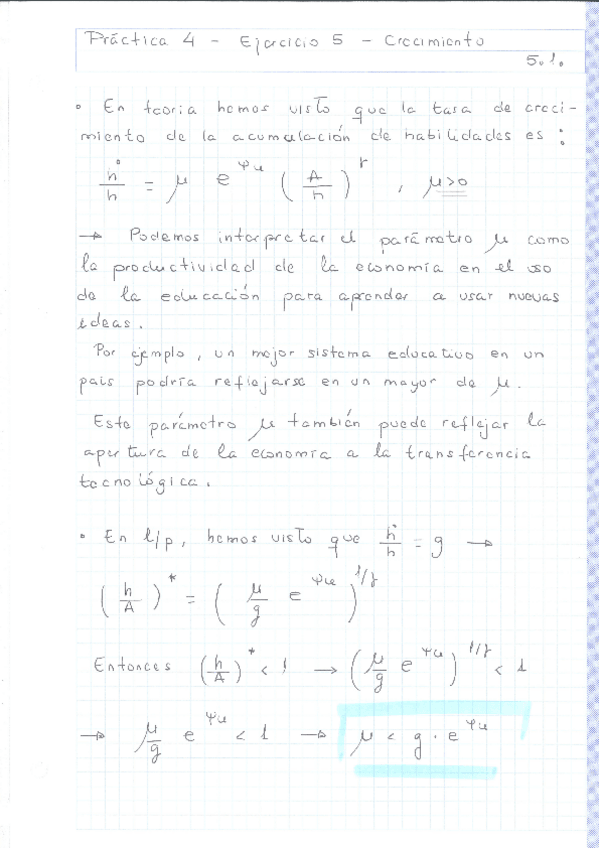 Práctica 4 - Ejercicio 5 - Crecimiento
5.1.
• En teoría hemos visto que la tasa de creci-
miento de la acumulación de habilidades es :
ḣ/h = μ e^ψu (A/h)^γ , μ>0
→ Podemos interpretar el parámetro μ como
la productividad de la economía en el uso
de la educación para aprender a usar nuevas
ideas.
Por ejemplo, un mejor sistema educativo en un
país podría reflejarse en un mayor de μ.
Este parámetro μ también puede reflejar la
apertura de la economía a la transferencia
tecnológica.
• En l/p, hemos visto que ḣ/h = g →
(h/A)^* = (μ/g e^ψu)^1/γ
Entonces (h/A)^* < 1 → (μ/g e^ψu)^1/γ < 1
→ μ/g e^ψu < 1 → μ < g · e^ψu